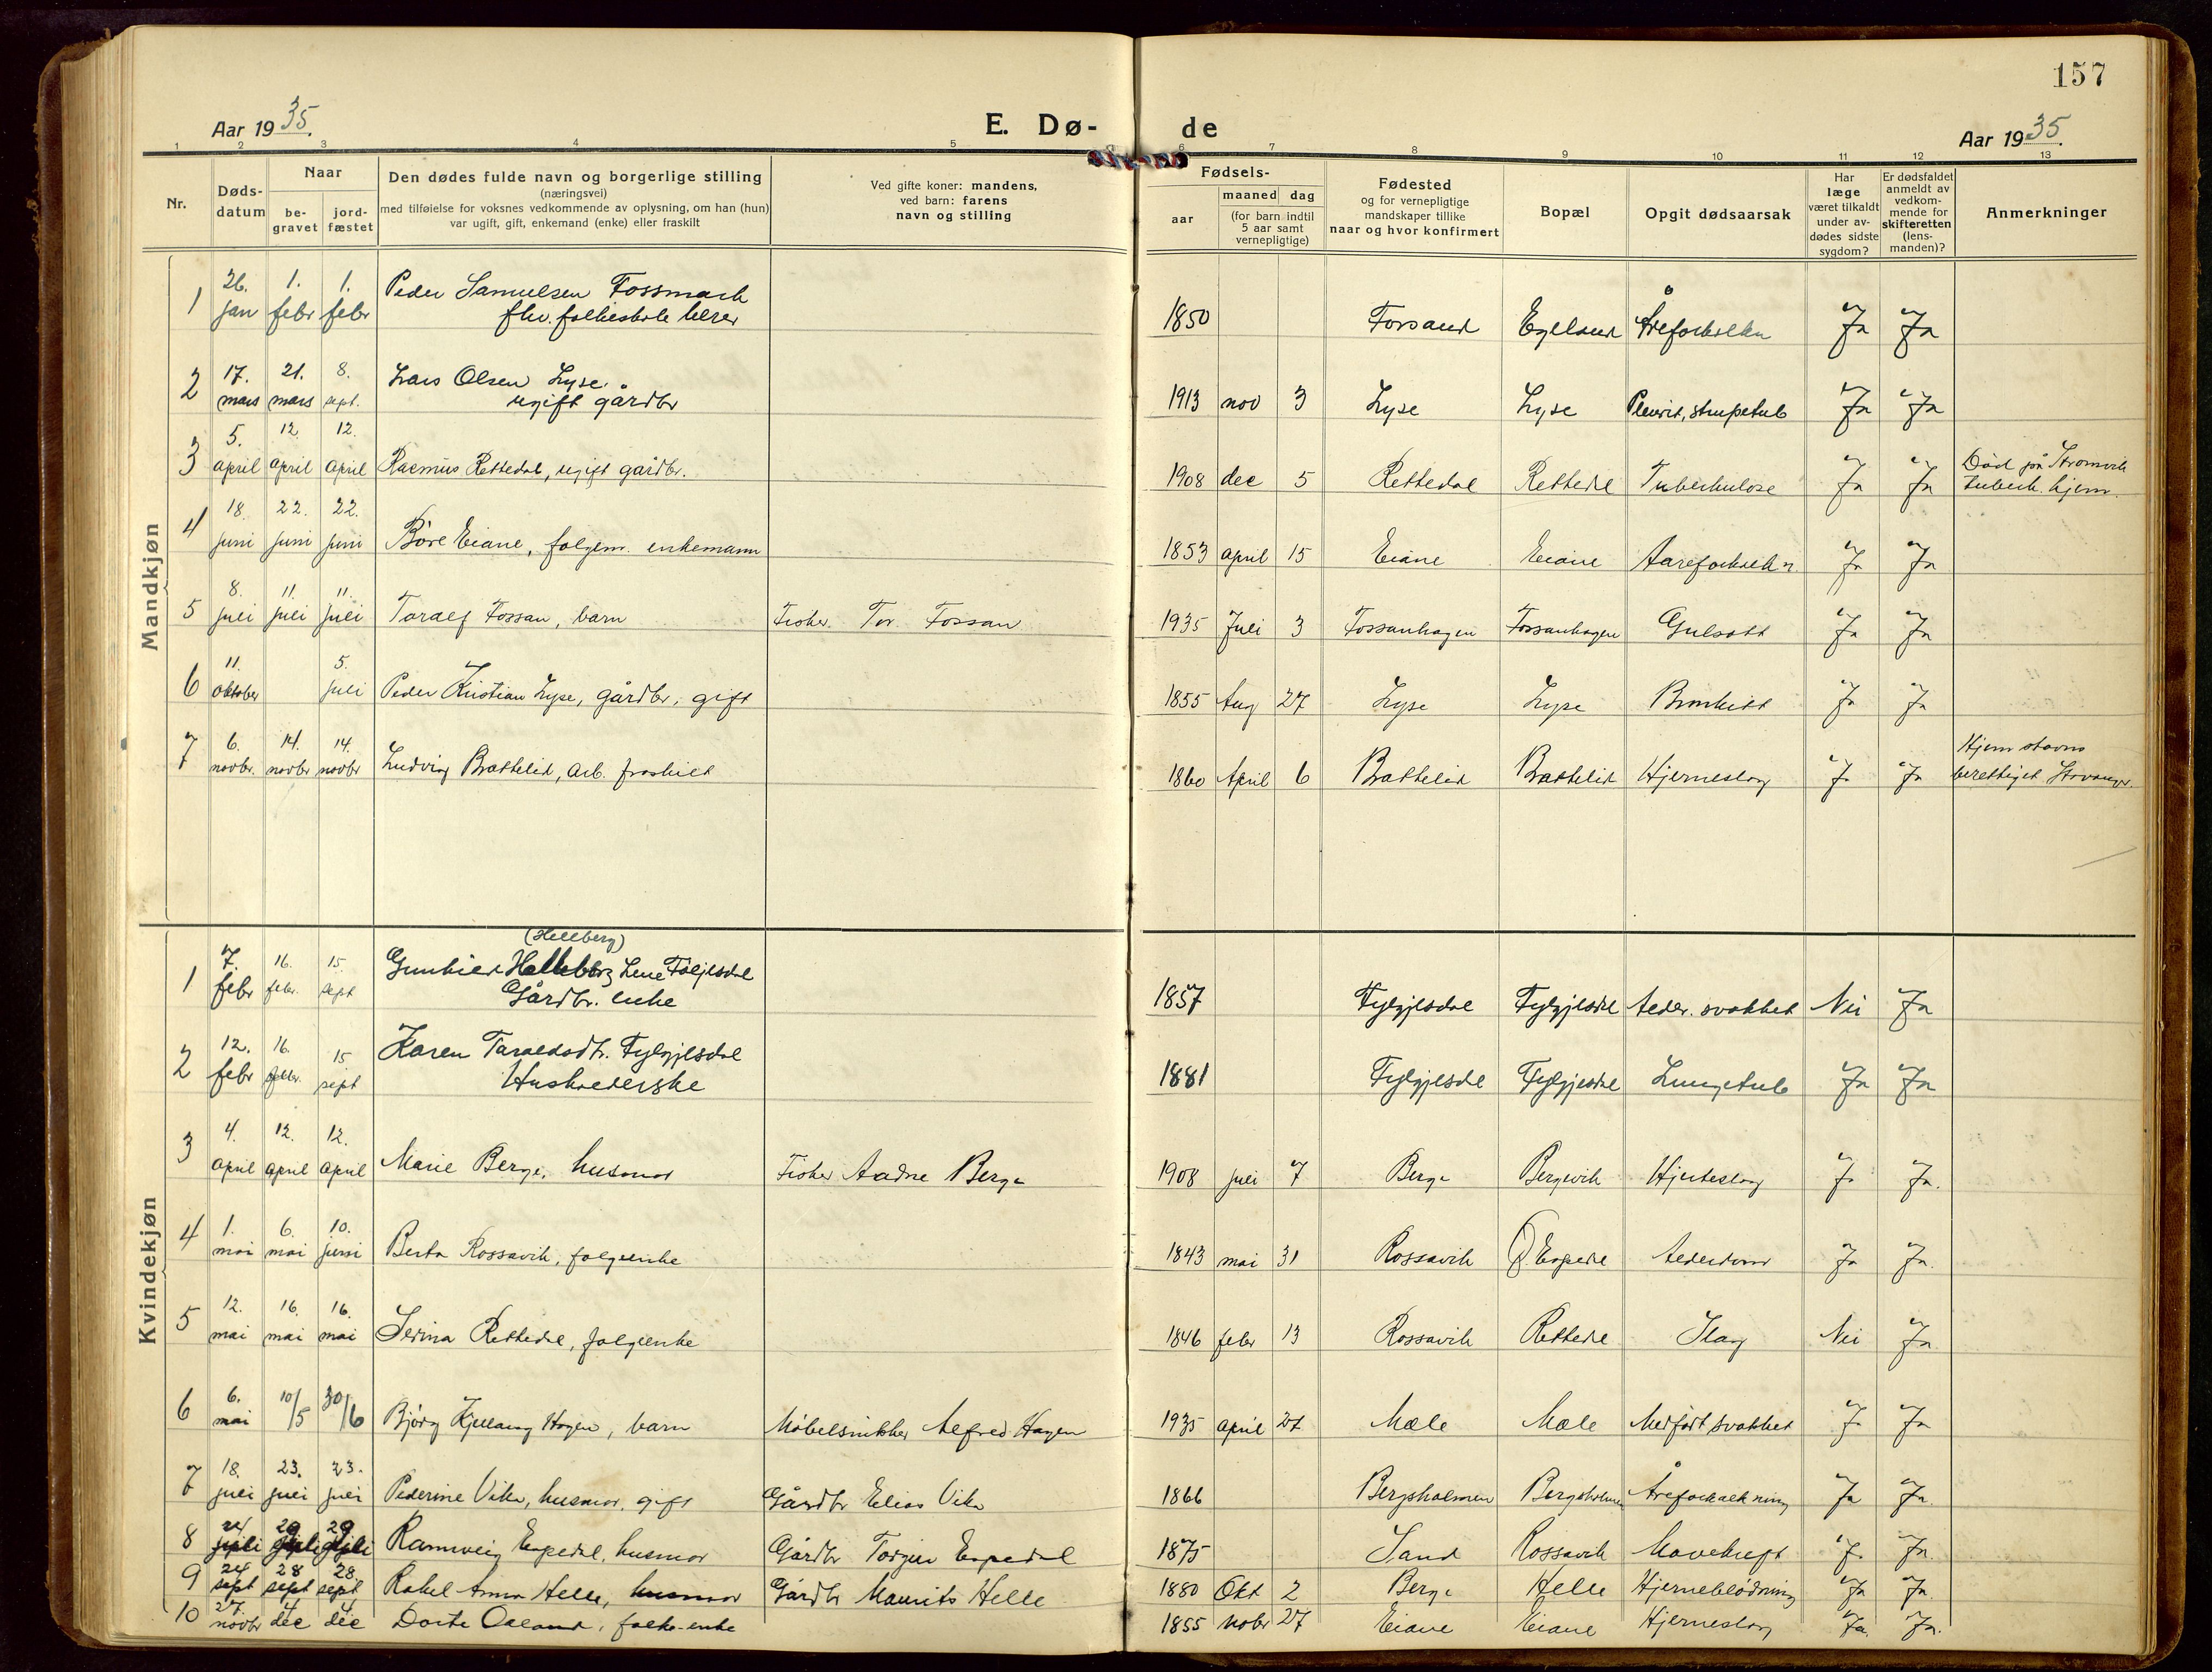 157
Aar 1935.
E. Dø-
de
Aar 1935.
1 2 3 4 5 6 7 8 9 10 11 12 13
Nr.
Døds-
datum
Naar
be-
gravet
jord-
fæstet
Den dødes fulde navn og borgerlige stilling
(næringsvei)
med tilføielse for voksnes vedkommende av oplysning, om han (hun)
var ugift, gift, enkemand (enke) eller fraskilt
Ved gifte koner: mandens,
ved barn: farens
navn og stilling
Fødsels-
aar
maaned dag
(for barn indtil
5 aar samt
vernepligtige)
Fødested
og for vernepligtige
mandskaper tillike
naar og hvor konfirmert
Bopæl
Opgit dødsaarsak
Har
læge
været tilkaldt
under av-
dødes sidste
sygdom?
Er dødsfaldet
anmeldt av
vedkom-
mende for
skifteretten
(lens-
manden)?
Anmerkninger
Mandkjøn
1 26. jan 1. febr 1. febr Peder Samuelsen Fossmark
fhv. folkeskole lærer 1850 Forsand Egeland Åreforkalkn Ja Ja
2 17. mars 21. mars 8. sept. Lars Olsen Lyse.
ugift gårdbr 1913 nov 3 Lyse Lyse Pleurit, strupetub Ja Ja
3 5. april 12. april 12. april Rasmus Rettedal, ugift gaardbr. 1908 dec 5 Rettedal Rettedal Tuberkulose Ja Ja Død på Strømvik
tuberk. hjem.
4 18. juni 22. juni 22. juni Børe Eiane, folgem. enkemann 1853 april 15 Eiane Eiane Aareforkalkn. Ja Ja
5 8. juli 11. juli 11. juli Toralf Fossan, barn Fisker Tor. Fossan 1935 Juli 3 Fossanhagen Fossanhagen Gulsott Ja Ja
6 11. oktober 5. juli Peder Kristian Lyse, gårdbr, gift 1855 Aug 27 Lyse Lyse Bronkitt Ja Ja
7 6. novbr. 14. novbr 14. novbr Ludvig Brattelid, arb. fraskilt 1860 April 6 Brattelid Brattelid Hjerneslag Ja Ja Hjemstavns
berettiget Stavanger.
Kvindekjøn
(Helleberg)
1 7. febr 16. febr. 15. sept Gunhild Lene Fylgjesdal
Gårdbr. enke 1857 Fylgjesdal Fylgjesdal Alder. svakhet Nei Ja
2 12. febr 16. febr. 15 sept Karen Taraldsdtr. Fylgjesdal
Husholderske 1881 Fylgjesdal Fylgjesdal Lungetub Ja Ja
3 4. april 12. april 12. april Marie Berge, husmor Fisker Aadne Berge 1908 juli 7 Berge Bergevik Hjerteslag Ja Ja.
4 1. mai 6. mai 10. juni Berta Rossavik, folgeenke 1843 mai 31 Rossavik Espedal Alderdom Ja Ja.
5 12. mai 16. mai 16. mai Serina Rettedal, folgeenke 1846 febr 13 Rossavik Rettedal Slag Nei Ja.
6 6. mai 10/5 30/6 Bjørg Kjellaug Hagen, barn Møbelsnikker Alfred Hagen 1935 april 27 Mæle Mæle Medfødt svakhet Ja Ja
7 18. juli 23. juli 23. juli Pederine Vika, husmor, gift Gårdbr Elias Vika 1866 Bergsholmen Bergsholmen Åreforkalkning Ja Ja.
8 24 juli 29 juli 29 juli Rannveig Espedal, husmor Gårdbr Torger Espedal 1875 Sand Rossavik Mavekreft Ja Ja.
9 24 sept 28 sept 28 sept Rakel Anna Helle, husmor Gårdbr Maurits Helle 1880 Okt 2 Berge Helle Hjerneblødning Ja Ja.
10 27. novbr 4 dec 4 dec Dorte Oaland, folke-enke 1855 nobr 27 Eiane Eiane Hjerneslag Ja. Ja.